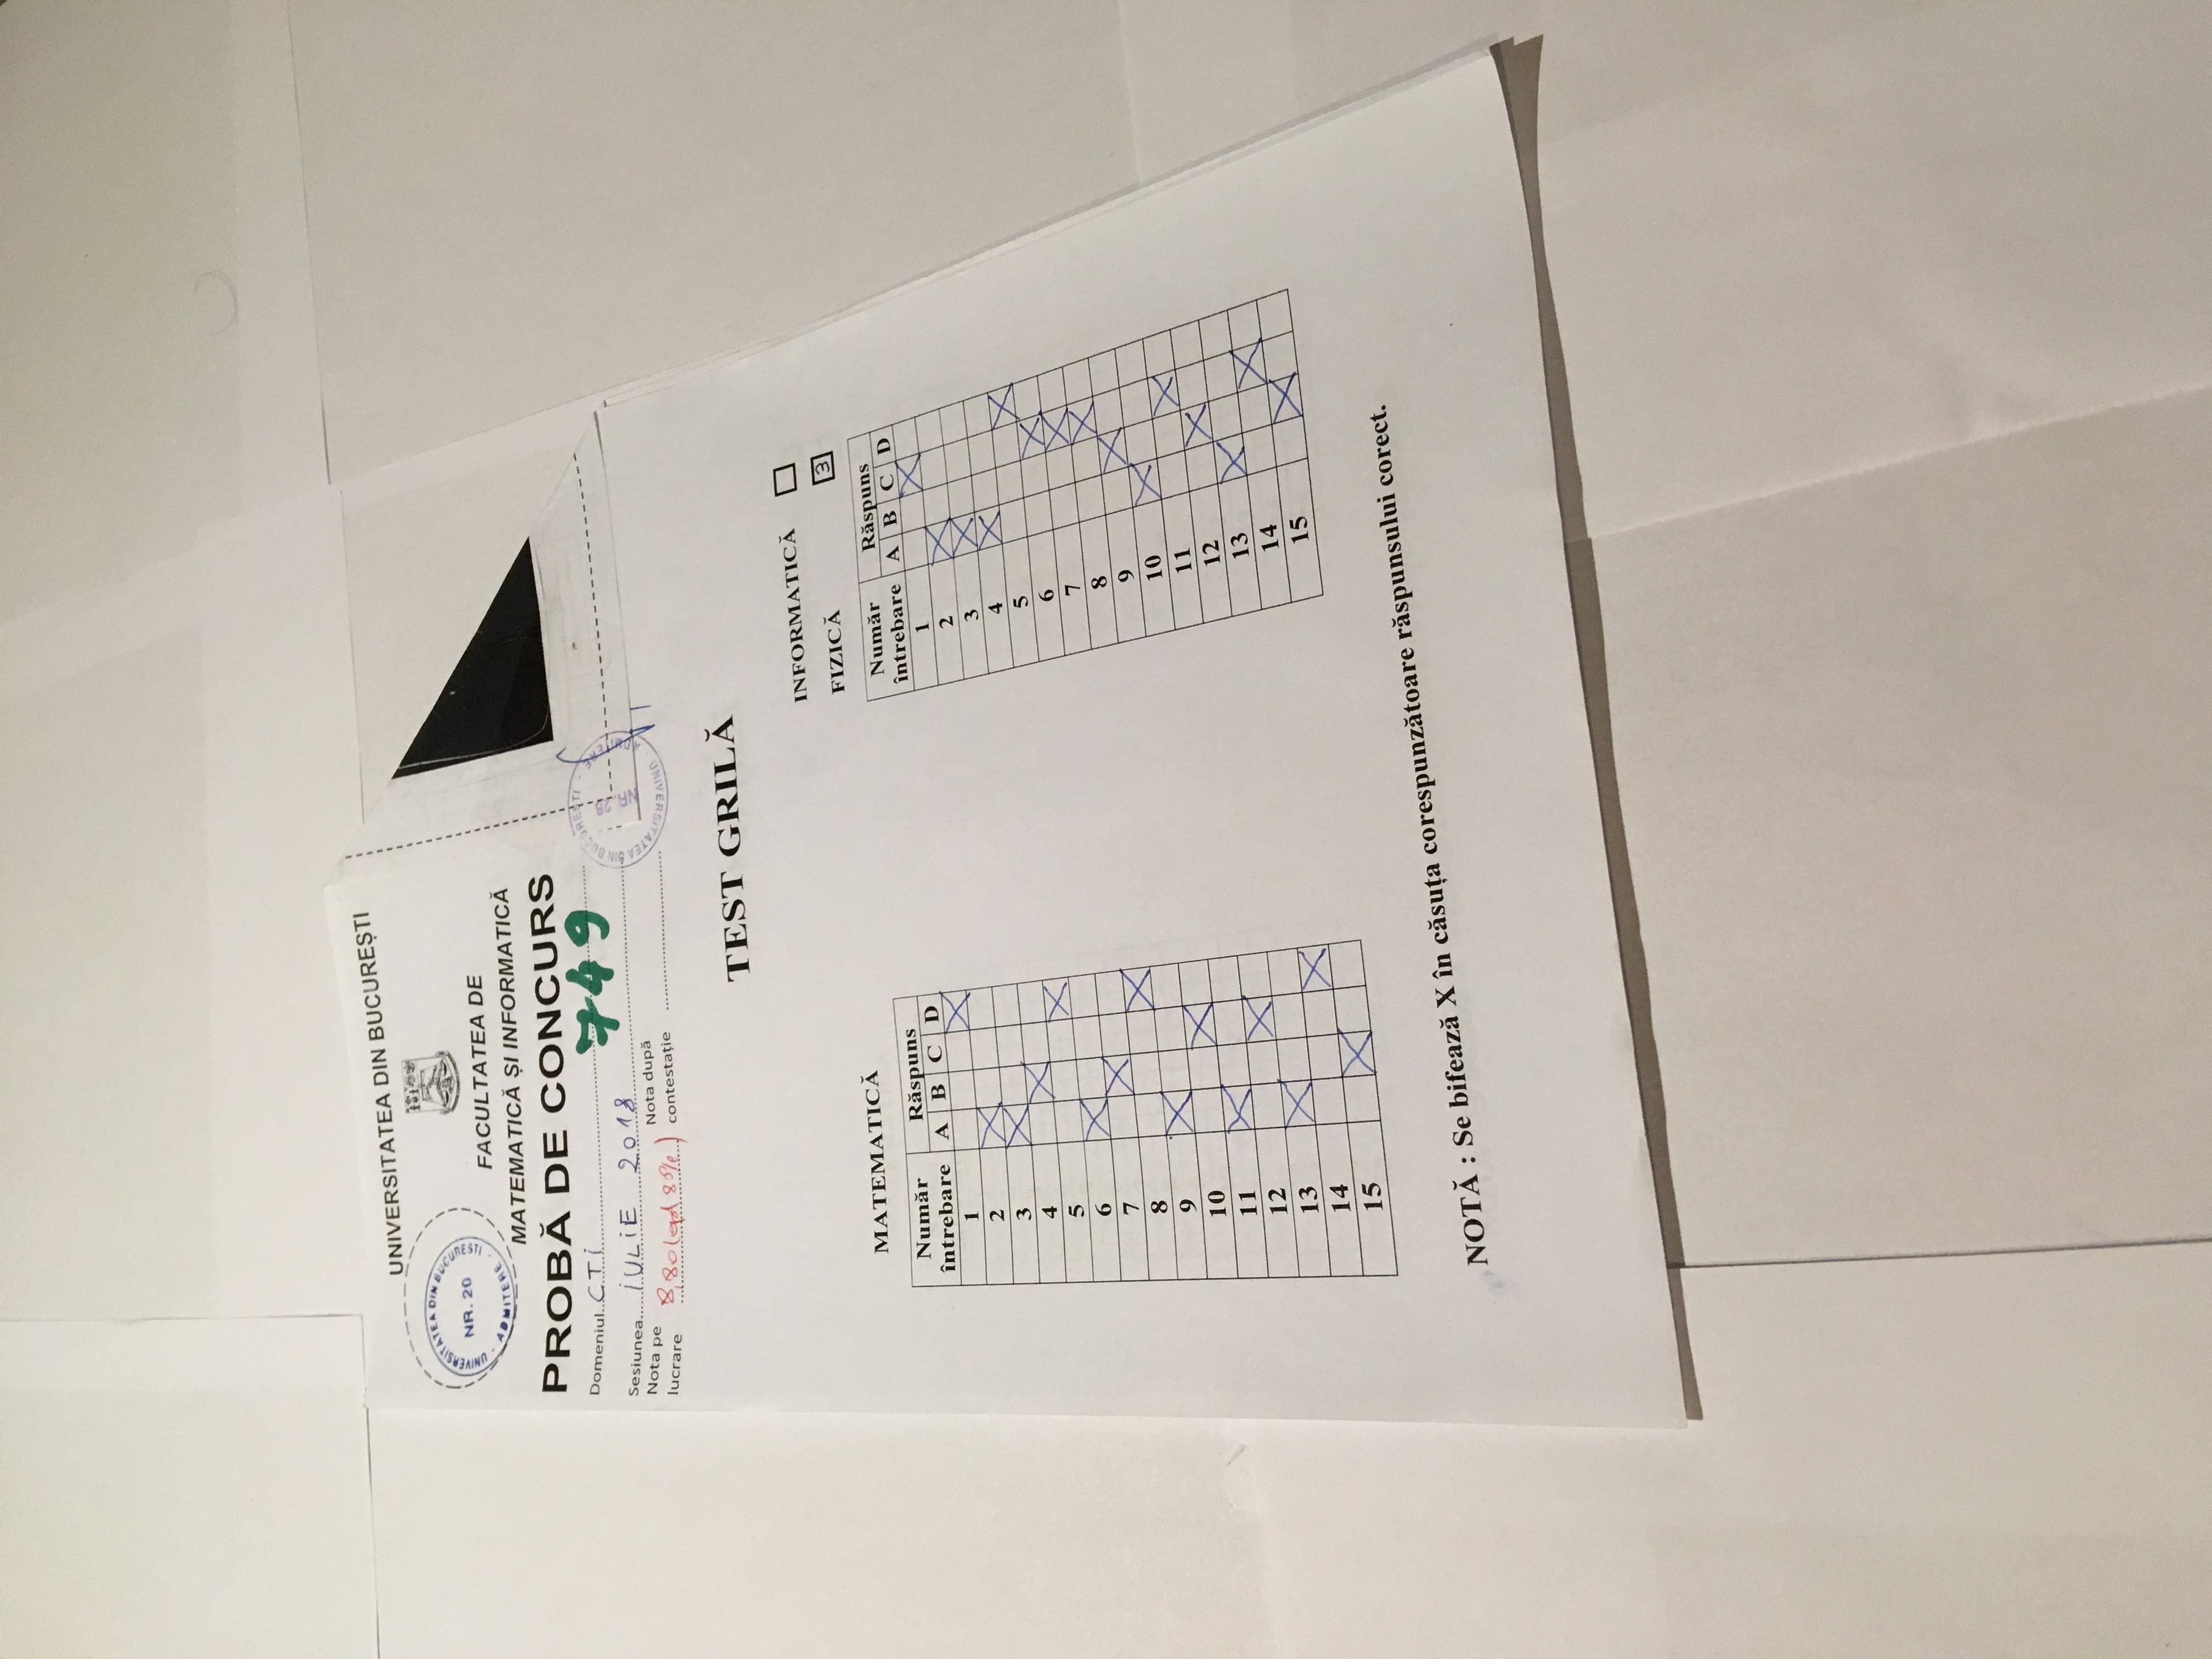 UNIVERSITATEA DIN BUCUREȘTI
UNIVERSITATEA DIN BUCUREȘTI
NR. 20
ADMITERE
FACULTATEA DE
MATEMATICĂ ȘI INFORMATICĂ
PROBĂ DE CONCURS
Domeniul CTi
749
Sesiunea iULiE 2018
Nota pe lucrare 8,80
Nota după contestație
UNIVERSITATEA DIN BUCUREȘTI
NR. 28
ADMITERE
TEST GRILĂ
MATEMATICĂ
Număr întrebare Răspuns
A B C D
1 X
2 X
3 X
4 X
5 X
6 X
7 X
8 X
9 X
10 X
11 X
12 X
13 X
14 X
15 X
INFORMATICĂ
FIZICĂ 3
Număr întrebare Răspuns
A B C D
1 X
2 X
3 X
4 X
5 X
6 X
7 X
8 X
9 X
10 X
11 X
12 X
13 X
14 X
15 X
NOTĂ : Se bifează X în căsuța corespunzătoare răspunsului corect.